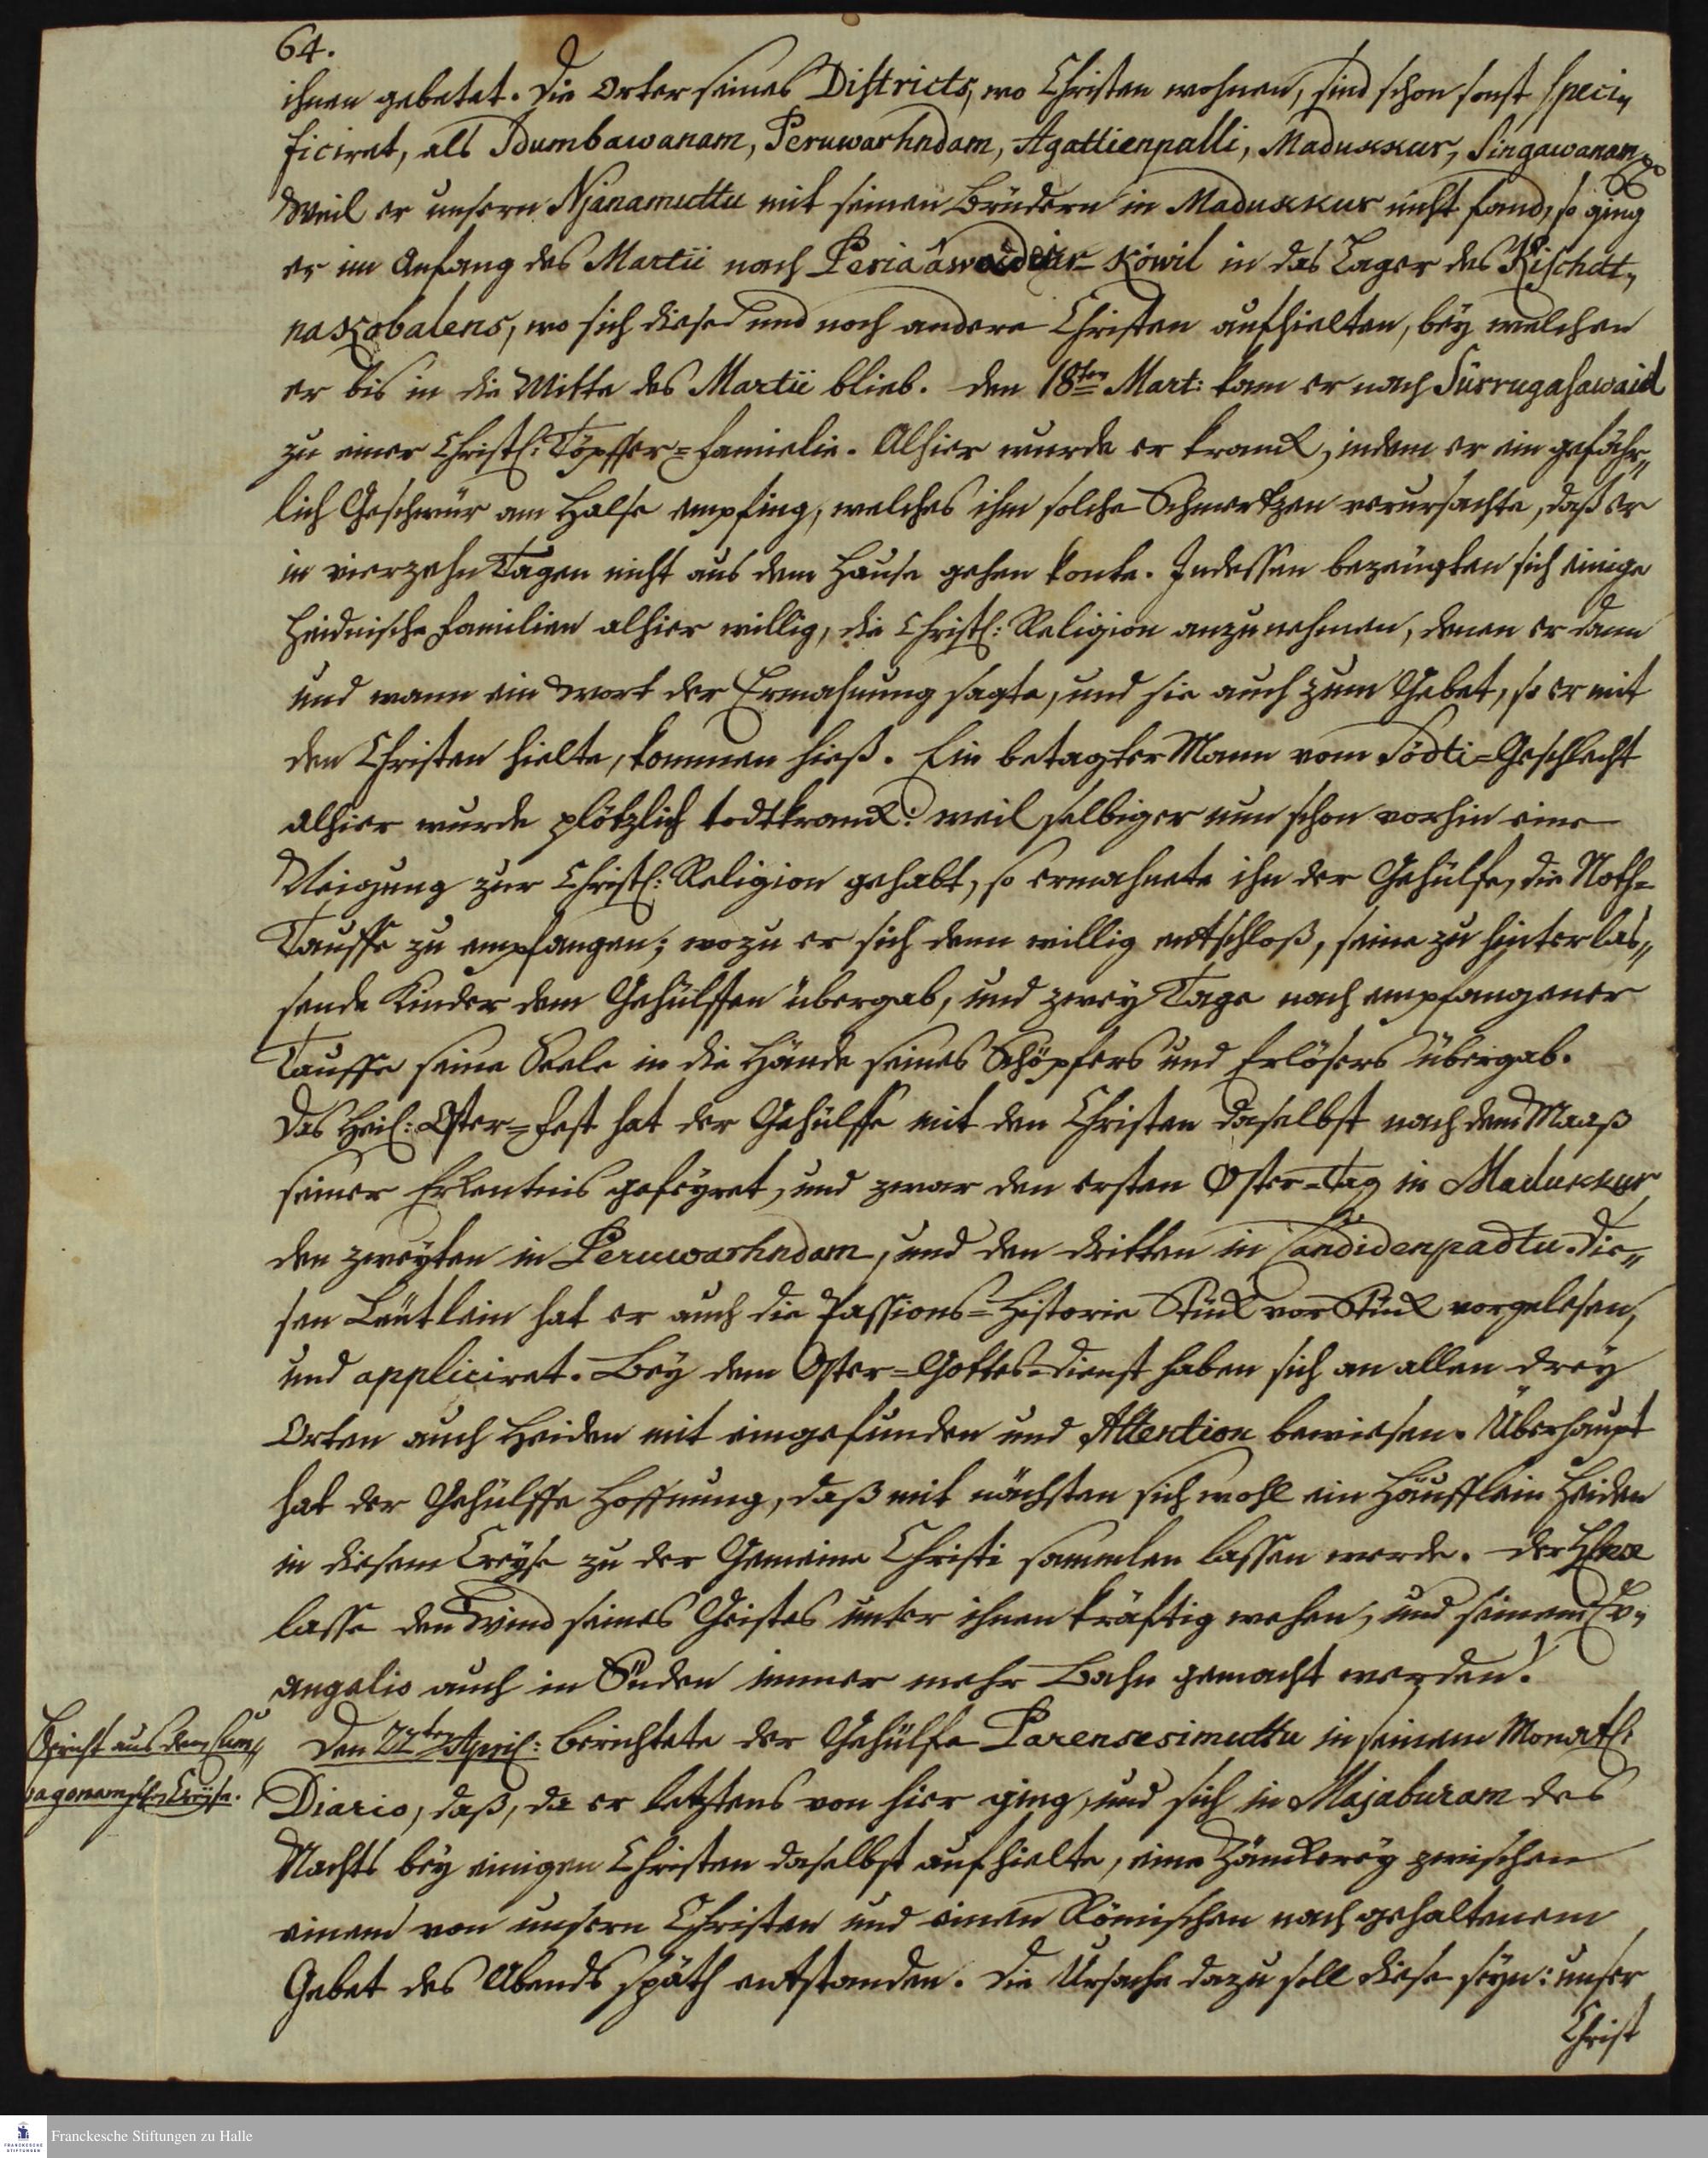 64.
ihnen gebetet. Die Orter seines Districts, wo Christen wohnen, sind schon sonst speci„
ficiret, als Idumbawanam, Peruwarhndam, Agattienpalli, Madukkur, Singawanam p
Weil er unsern Njanamuttu mit seinen Brüdern in Madukkur nicht fand, so ging
er im Anfang des Martii nach kówil in das Lager des Kischät„
naskobalens, wo sich diese und noch andere Christen aufhielten, bey welchen
er bis in die Mitte des Martii blieb. Den 18ten Mart: kam er nach
zu einer Christl: Töpffer=Familie. Alhier wurde er kranck, indem er ein gefähr„
lich Geschwür am Halse empfing, welches ihm solche Schmertzen verursachte, daß er
in vierzehn Tagen nicht aus dem Hause gehen konte. Indessen bezeugten sich einige
Heidnische Familien alhier willig, die Christl: Religion anzunehmen, denen er dann
und wann ein Wort der Ermahnung sagte, und sie auch zum Gebet, so er mit
den Christen hielte, kommen hieß. Ein betagter Mann vom Södti=Geschlecht
alhier wurde plötzlich todtkranck: weil selbiger nun schon vorhin eine
Neigung zur Christl: Religion gehabt, so ermahnete ihn der Gehülfe, die Noth=
Tauffe zu empfangen; wozu er sich denn willig entschloß, seine zu hinterlas„
sende Kinder dem Gehülffen übergab, und zwey Tage nach empfangener
Tauffe seine Seele in die Hände seines Schöpfers und Erlösers übergab.
Das Heil: Oster=Fest hat der Gehülffe mit den Christen daselbst nach dem Maaß
seiner Erkentnis gefeyret, und zwar den ersten Oster=Tag in Madukkur,
den zweyten in Peruwarhndam, und den dritten in Candidenpadtu. Die„
sen Leutlein hat er auch die Passions=Historie Stück vor Stück vorgelesen,
und appliciret. Bey dem Oster=Gottes=dienst haben sich an allen drey
Orten auch Heiden mit eingefunden und Attention bewiesen. Überhaupt
hat der Gehülffe Hoffnung, daß mit nächsten sich wohl ein Häufflein Heiden
in diesem Creyse zu der Gemeine Christi sammlen lassen werde. Der HErr
lasse den Wind seines Geistes unter ihnen kräftig wehen, und seinem Ev„
angelio auch in Süden immer mehr Bahn gemacht werden!
Bericht aus dem Cum„
bagonamschen Creyse.
Den 22ten April: berichtete der Gehülfe Parensesimuttu in seinem Monatl:
Diario, daß, da er letztens von hier ging, und sich in Majaburam des
Nachts bey einigen Christen daselbst aufhielte, eine Zänckerey zwischen
einem von unsern Christen und einem Römischen nach gehaltenem
Gebet des Abends späth entstanden. Die Ursache dazu soll diese seyn: unser
Christ
Franckesche Stiftungen zu Halle